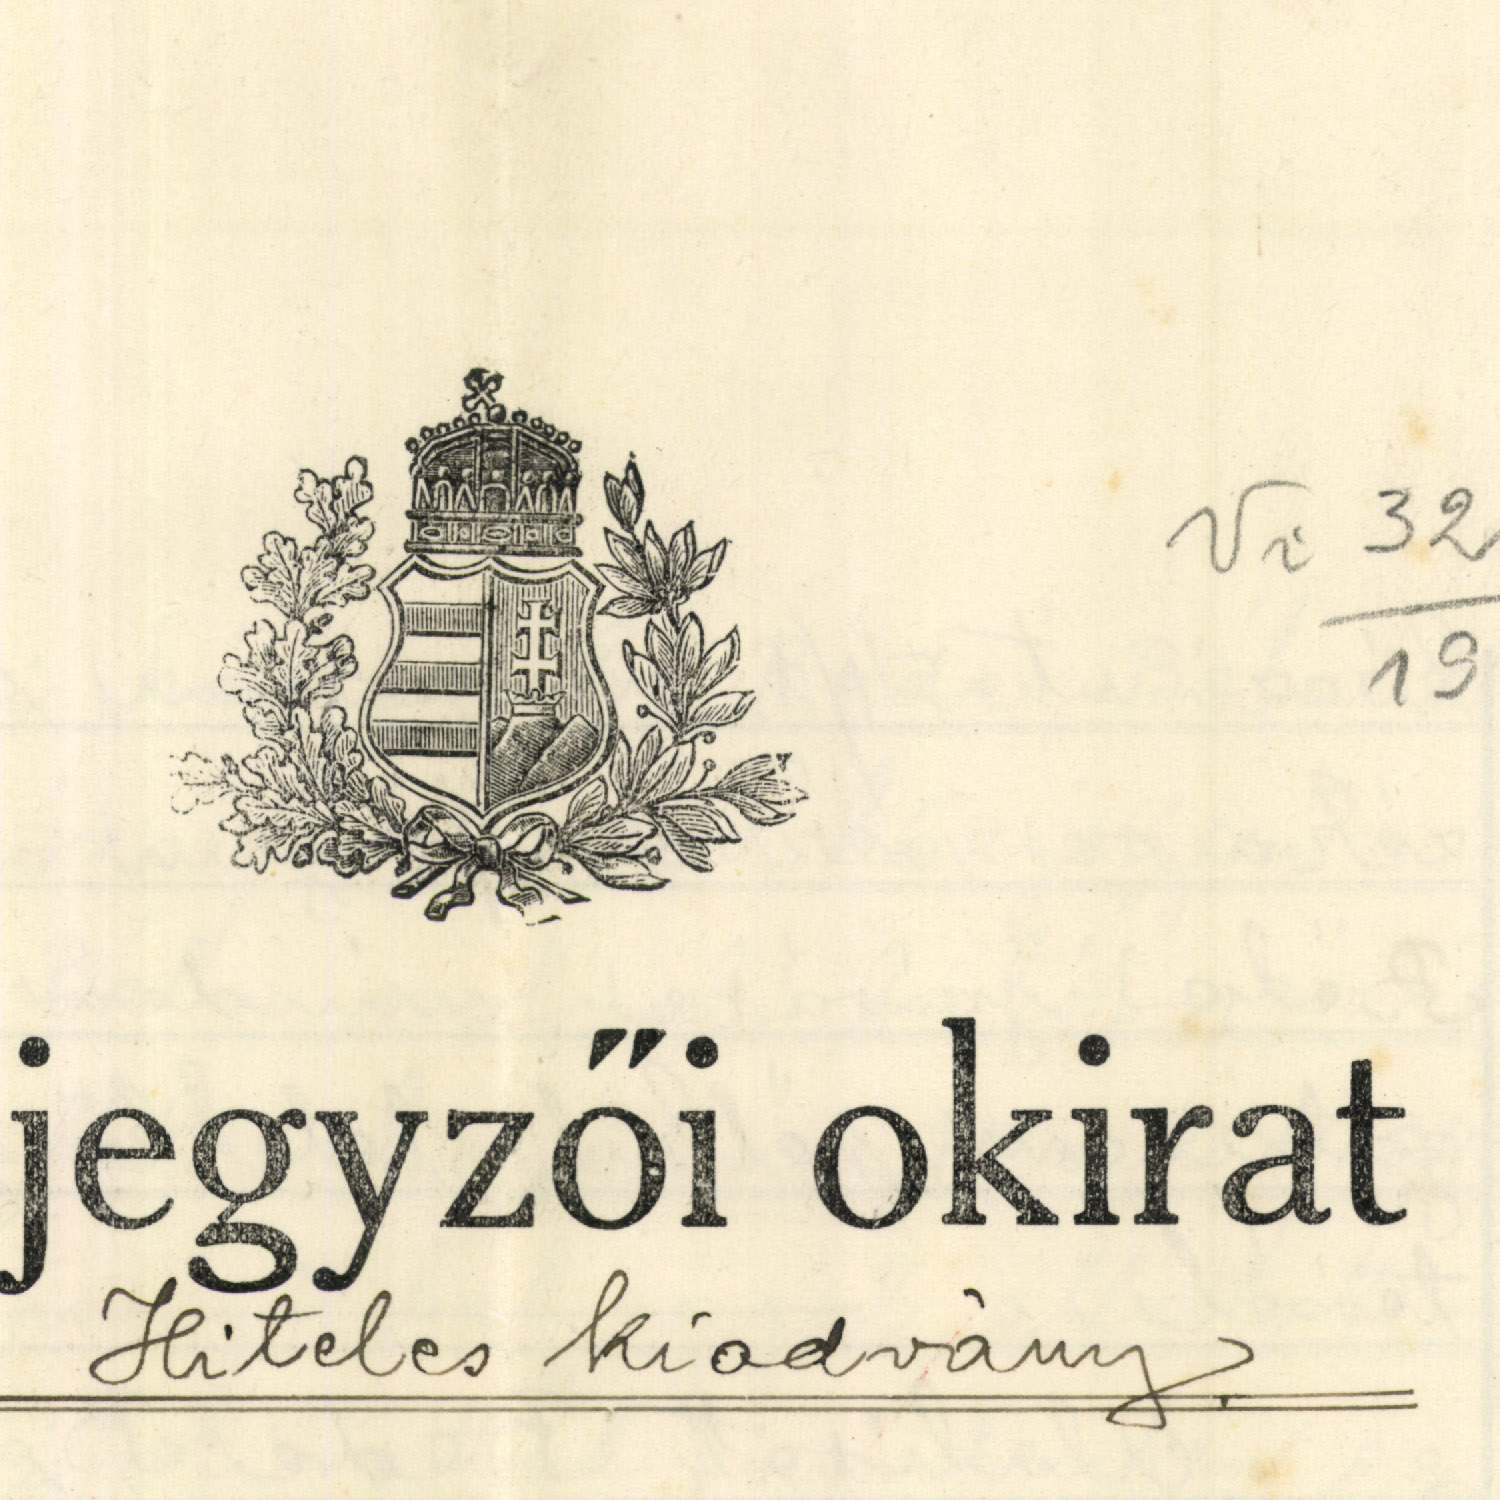 Vi 32
19
jegyzői okirat
Hiteles kiadvány.